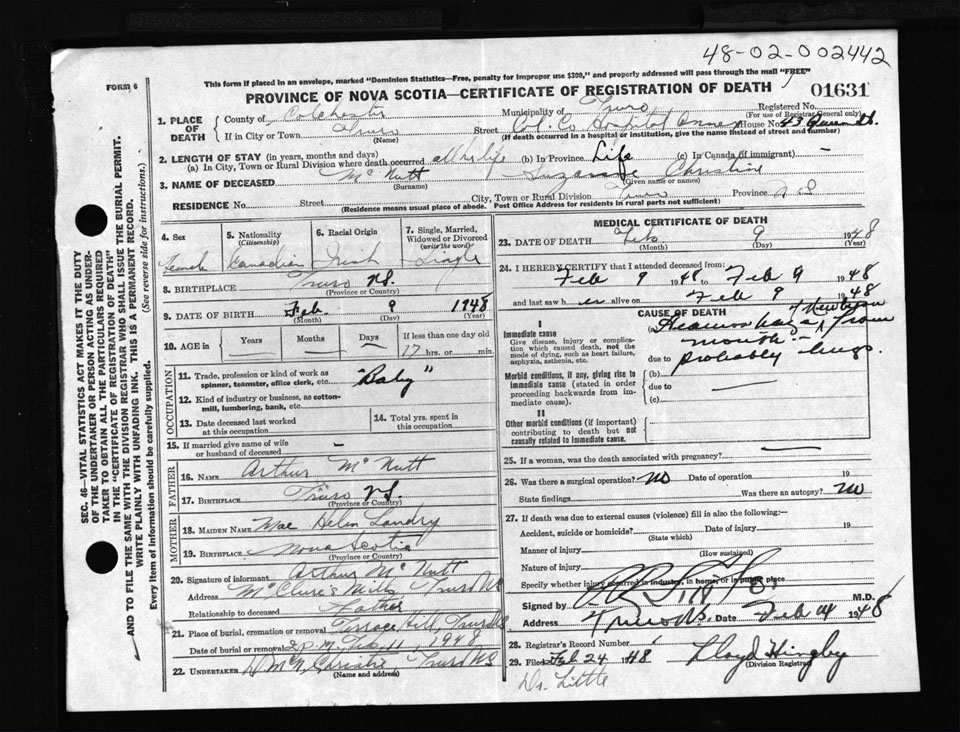 48-02-002442
FORM 6
This form if placed in an envelope, marked "Dominion Statistics—Free, penalty for improper use $300," and properly addressed will pass through the mail "FREE"
PROVINCE OF NOVA SCOTIA—CERTIFICATE OF REGISTRATION OF DEATH
01631
1. PLACE OF DEATH
County of Colchester
Municipality of Truro
Registered No.
(For use of Registrar General only)
If in City or Town Truro
Street Col. Co. Hospital Annex House No. 43 Queen St.
(If death occurred in a hospital or institution, give the name instead of street and number)
2. LENGTH OF STAY (in years, months and days)
(a) In City, Town or Rural Division where death occurred all her life (b) In Province Life (c) In Canada (if immigrant) —
3. NAME OF DECEASED McNutt Suzanne Christine
(Surname) (Given name or names)
RESIDENCE No. Street City, Town or Rural Division Truro Province N S
(Residence means usual place of abode. Post Office Address for residents in rural parts not sufficient)
4. Sex
Female
5. Nationality (Citizenship)
Canadian
6. Racial Origin
Irish
7. Single, Married, Widowed or Divorced (write the word)
Single
8. BIRTHPLACE Truro N.S.
(Province or Country)
9. DATE OF BIRTH Feb. 9 1948
(Month) (Day) (Year)
10. AGE in Years Months Days If less than one day old
17 hrs. or min.
OCCUPATION
11. Trade, profession or kind of work as spinner, teamster, office clerk, etc. "Baby"
12. Kind of industry or business, as cotton-mill, lumbering, bank, etc.
13. Date deceased last worked at this occupation
14. Total yrs. spent in this occupation
15. If married give name of wife or husband of deceased —
FATHER
16. NAME Arthur McNutt
17. BIRTHPLACE Truro N.S.
MOTHER
18. MAIDEN NAME Mae Helen Landry
19. BIRTHPLACE Nova Scotia
(Province or Country)
20. Signature of informant Arthur McNutt
Address McClure's Mills Truro NS
Relationship to deceased Father
21. Place of burial, cremation or removal Terrace Hill, Truro
Date of burial or removal 2 P.M. Feb. 11, 1948
22. UNDERTAKER Christie, Truro NS
(Name and address)
MEDICAL CERTIFICATE OF DEATH
23. DATE OF DEATH Feb 9 1948
(Month) (Day) (Year)
24. I HEREBY CERTIFY that I attended deceased from:
Feb 9 1948 Feb 9 1948
and last saw her alive on Feb 9 1948
CAUSE OF DEATH
I
Immediate cause
Give disease, injury or complication which caused death, not the mode of dying, such as heart failure, asphyxia, asthenia, etc.
of Newborn
from
mouth —
due to probably lungs.
Morbid conditions, if any, giving rise to immediate cause (stated in order proceeding backwards from immediate cause).
(b)
due to —
(c)
II
Other morbid conditions (if important) contributing to death but not causally related to immediate cause.
25. If a woman, was the death associated with pregnancy?
26. Was there a surgical operation? no Date of operation 19
State findings Was there an autopsy? no
27. If death was due to external causes (violence) fill in also the following:—
Accident, suicide or homicide? Date of injury 19
(State which)
Manner of injury
(How sustained)
Nature of injury
Specify whether injury occurred in industry, in home, or in public place
Signed by M.D.
Address Truro NS. Date Feb 24 1948
28. Registrar's Record Number 1
29. Filed Feb 24 1948 Lloyd Hingley
(Division Registrar)
Dr. Little
SEC. 46—VITAL STATISTICS ACT MAKES IT THE DUTY
OF THE UNDERTAKER OR PERSON ACTING AS UNDERTAKER
TO OBTAIN ALL THE PARTICULARS REQUIRED
IN THE "CERTIFICATE OF REGISTRATION OF DEATH"
AND TO FILE THE SAME WITH THE DIVISION REGISTRAR WHO SHALL ISSUE THE BURIAL PERMIT.
WRITE PLAINLY WITH UNFADING INK. THIS IS A PERMANENT RECORD.
Every item of information should be carefully supplied.
(See reverse side for instructions.)